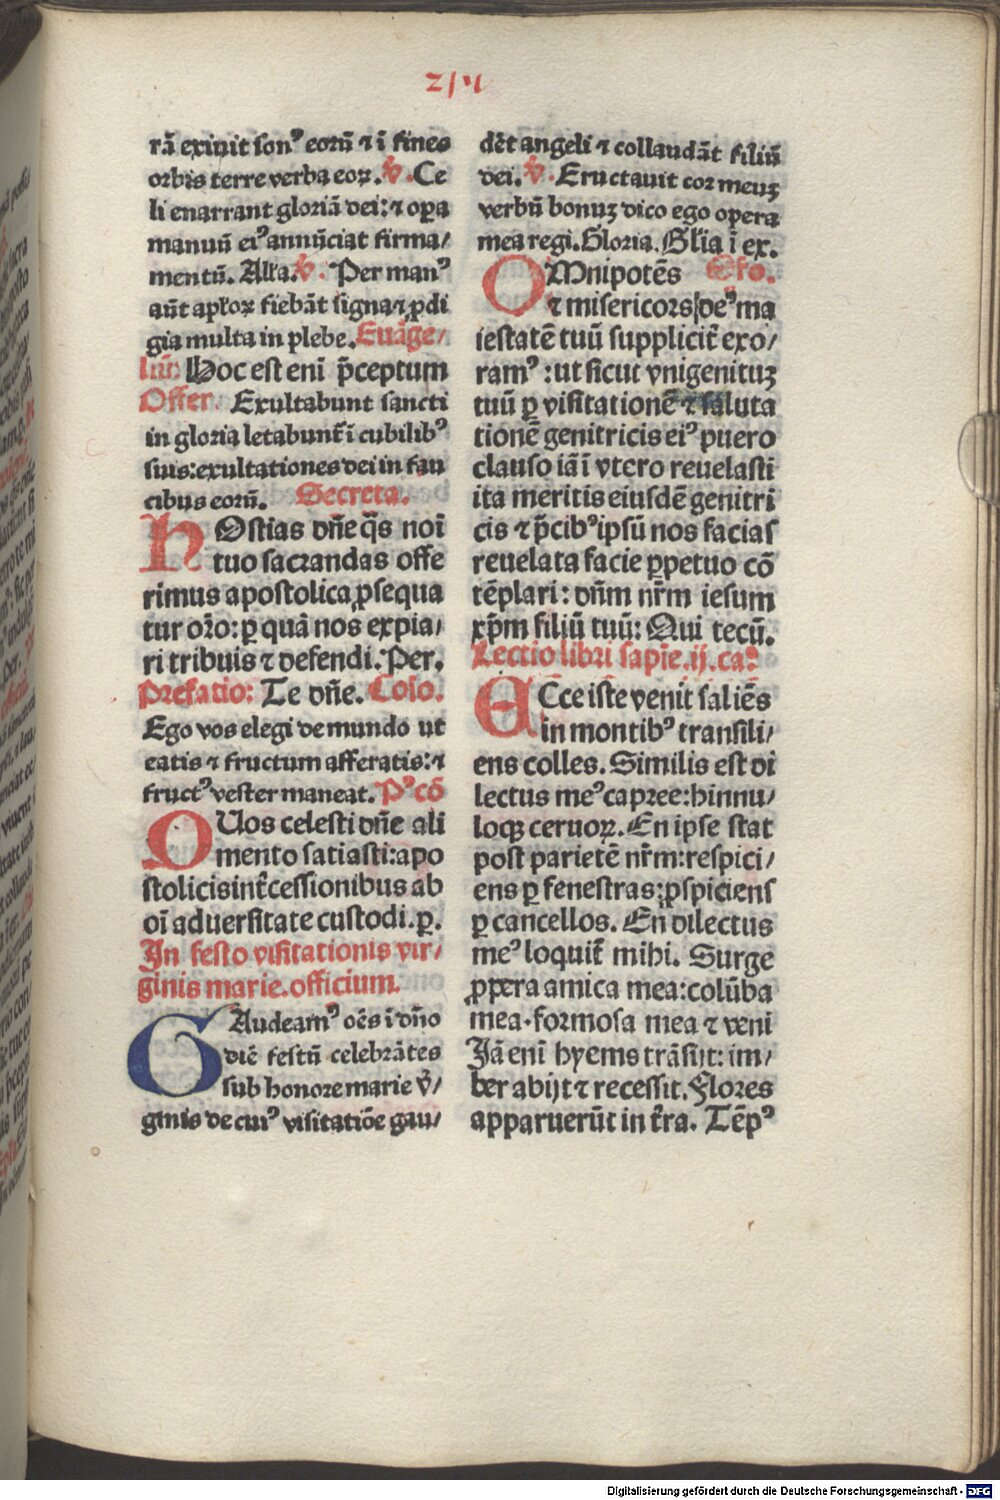 rā exiuit sonꝰ eorū ⁊ ī fines
orbis terre verba eoꝝ. v̄. Ce
li enarrant gloriā dei: ⁊ oꝑa
manuū eiꝰ annūciat firma/
mentū. Alla. v̄. Per manꝰ
aūt apłoꝝ fiebāt signa ⁊ ꝓdi
gia multa in plebe. Euāge/
liū: Hoc est eni p̄ceptum
Offer. Exultabunt sancti
in gloria letabunt̄ ī cubilibꝰ
suis: exultationes dei in fau
cibus eorū. Secreta.
HOstias dn̄e q̄s noī
tuo sacrandas offe
rimus apostolica ꝓsequa
tur or̄o: ꝑ quā nos expia/
ri tribuis ⁊ defendi. Per.
Prefatio: Te dn̄e. Cōio.
Ego vos elegi de mundo ut
eatis ⁊ fructum afferatis: ⁊
fructꝰ vester maneat. Pꝰcō
QUos celesti dn̄e ali
mento satiasti: apo
stolicis int̄cessionibus ab
oī aduersitate custodi. ꝑ.
In festo visitationis vir/
ginis marie. officium.
GAudeamꝰ oēs ī dn̄o
diē festū celebrātes
sub honore marie v̄/
ginis de cuiꝰ visitatiōe gau/
dēt angeli ⁊ collaudāt filiū
dei. v̄. Eructauit cor meuꝫ
verbū bonuꝫ dico ego opera
mea regi. Gloria. Gl̄ia ī ex.
OMnipotēs Oro.
⁊ misericors deꝰ ma
iestatē tuū supplicit̄ exo/
ramꝰ: ut sicut vnigenituꝫ
tuū ꝑ visitationē ⁊ saluta
tionē genitricis eiꝰ puero
clauso iā ī vtero reuelasti
ita meritis eiusdē genitri
cis ⁊ p̄cibꝰ ipsū nos facias
reuelata facie ꝑpetuo cō
tēplari: dn̄m nr̄m iesum
xp̄m filiū tuū: Qui tecū.
Lectio libri sapīe. ij. ca:
ECce iste venit saliēs
in montibꝰ transili/
ens colles. Similis est di
lectus meꝰ capree: hinnu/
loqꝫ ceruoꝝ. En ipse stat
post parietē nr̄m: respici/
ens ꝑ fenestras: ꝓspiciens
ꝑ cancellos. En dilectus
meꝰ loquit̄ mihi. Surge
ꝓpera amica mea: colūba
mea. formosa mea ⁊ veni
Jā enī hyems trāsijt: im/
ber abijt ⁊ recessit. Flores
apparuerūt in t̄ra. Tēpꝰ
Digitalisierung gefördert durch die Deutsche Forschungsgemeinschaft - DFG